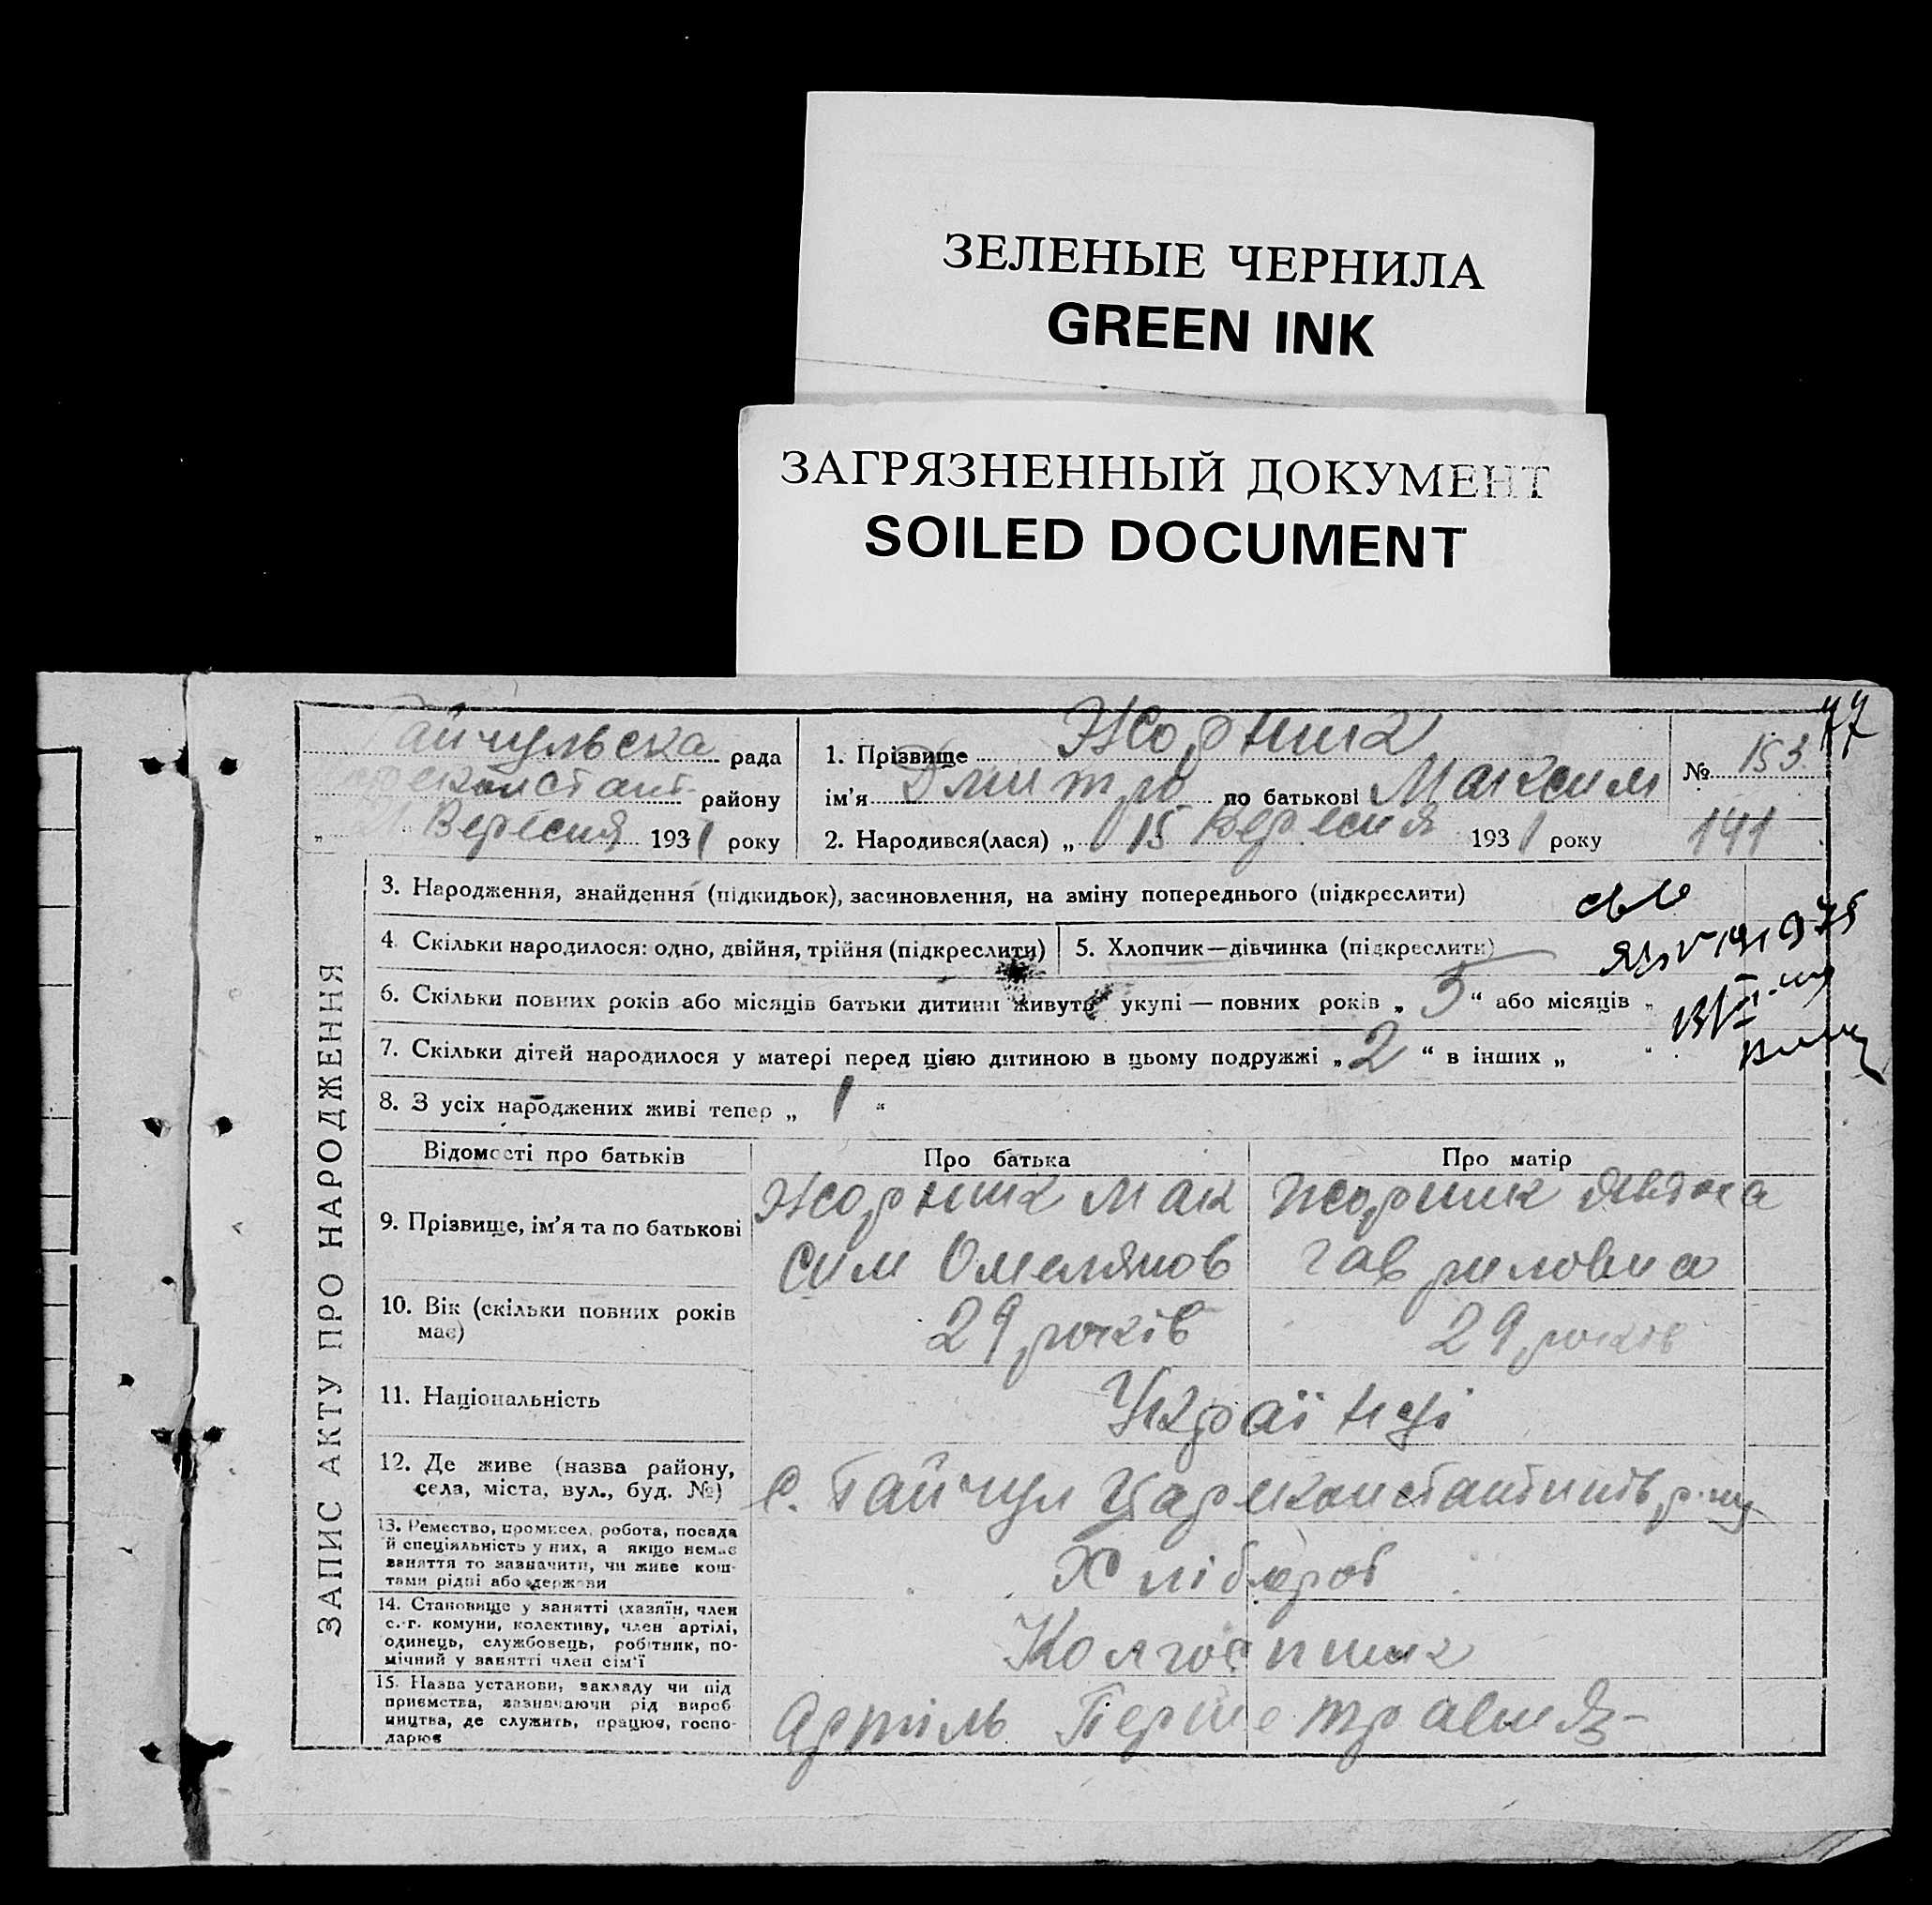 ЗЕЛЕНЫЕ ЧЕРНИЛА
GREEN INK
ЗАГРЯЗНЕННЫЙ ДОКУМЕНТ
SOILED DOCUMENT
77
Гайчульска рада
констант. району
„21“ Вересня 1931 року
1. Прізвище Жорник
ім’я Дмитро по батькові Максим
2. Народився(лася) „15 Вересня 1931 року
№ 153
141
ЗАПИС АКТУ ПРО НАРОДЖЕННЯ
3. Народження, знайдення (підкидьок), засиновлення, на зміну попереднього (підкреслити)
4. Скільки народилося: одно, двійня, трійня (підкреслити)
5. Хлопчик—дівчинка (підкреслити)
6. Скільки повних років або місяців батьки дитини живуть укупі — повних років „5“ або місяців „
7. Скільки дітей народилося у матері перед цією дитиною в цьому подружжі „2“ в інших „ “
8. З усіх народжених живі тепер „1“
Відомості про батьків
Про батька
Про матір
9. Прізвище, ім’я та по батькові
Жорник Мак
сим Омелянов
Жорник Явдоха
Гавриловна
10. Вік (скільки повних років
має)
29 років
29 років
11. Національність
Українці
12. Де живе (назва району,
села, міста, вул., буд. №)
с. Гайчул Царекостантинів р-ну
13. Ремество, промисел, робота, посада
й спеціяльність у них, а якщо немає
заняття то зазначити, чи живе кош-
тами рідні або держави
Хлібороб
14. Становище у занятті (хазяїн, член
с.-г. комуни, колективу, член артілі,
одинець, службовець, робітник, по-
мічний у занятті член сім’ї
Колгоспник
15. Назва установи, закладу чи під
приємства, зазначаючи рід вироб
ництва, де служить, працює, госпо-
дарює
Артіль Перше травня